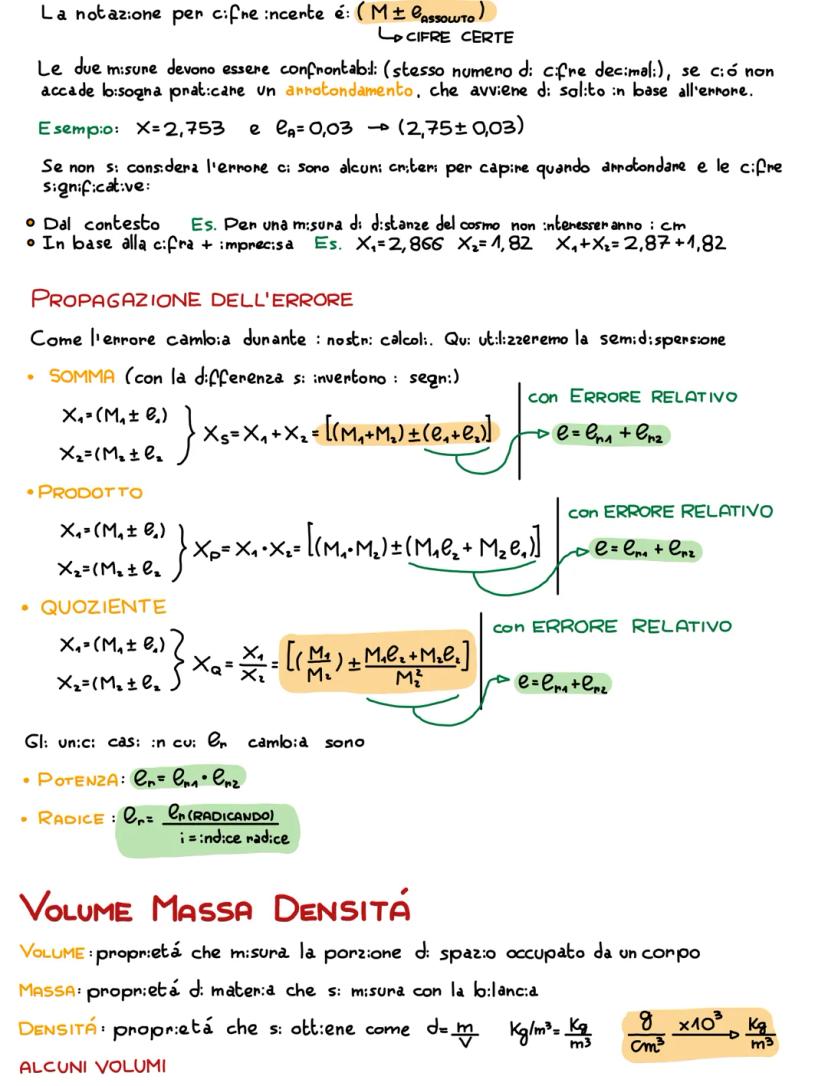 La notazione per cifre incerte é: (M ± e ASSOLUTO)
↳ CIFRE CERTE
Le due misure devono essere confrontabili (stesso numero di cifre decimali), se ció non
accade bisogna praticare un arrotondamento, che avviene di solito in base all'errore.
Esempio: X=2,753 e eA=0,03 → (2,75±0,03)
Se non si considera l'errore ci sono alcuni criteri per capire quando arrotondare e le cifre
significative:
• Dal contesto Es. Per una misura di distanze del cosmo non interesseranno i cm
• In base alla cifra + imprecisa Es. X₁=2,866 X₂=1,82 X₁+X₂=2,87+1,82
PROPAGAZIONE DELL'ERRORE
Come l'errore cambia durante i nostri calcoli. Qui utilizzeremo la semidispersione
• SOMMA (con la differenza si invertono i segni)
con ERRORE RELATIVO
X₁=(M₁±e₁)
X₂=(M₂±e₂
} Xs=X₁+X₂=[(M₁+M₂)±(e₁+e₂)]
e=er1+er2
• PRODOTTO
con ERRORE RELATIVO
X₁=(M₁±e₁)
X₂=(M₂±e₂
} Xp=X₁·X₂=[(M₁·M₂)±(M₁e₂+M₂e₁)]
e=er1+er2
• QUOZIENTE
con ERRORE RELATIVO
X₁=(M₁±e₁)
X₂=(M₂±e₂
} XQ=X₁/X₂=[(M₁/M₂)±(M₁e₂+M₂e₂)/M₂²]
e=er1+er2
Gli unici casi in cui er cambia sono
• POTENZA: er=er1·er2
• RADICE: er= er(RADICANDO)
i=indice radice
VOLUME MASSA DENSITÁ
VOLUME: proprietá che misura la porzione di spazio occupato da un corpo
MASSA: proprietá di materia che si misura con la bilancia
DENSITÁ: proprietá che si ottiene come d=m/V Kg/m³=Kg/m³ g/cm³ x10³→ Kg/m³
ALCUNI VOLUMI